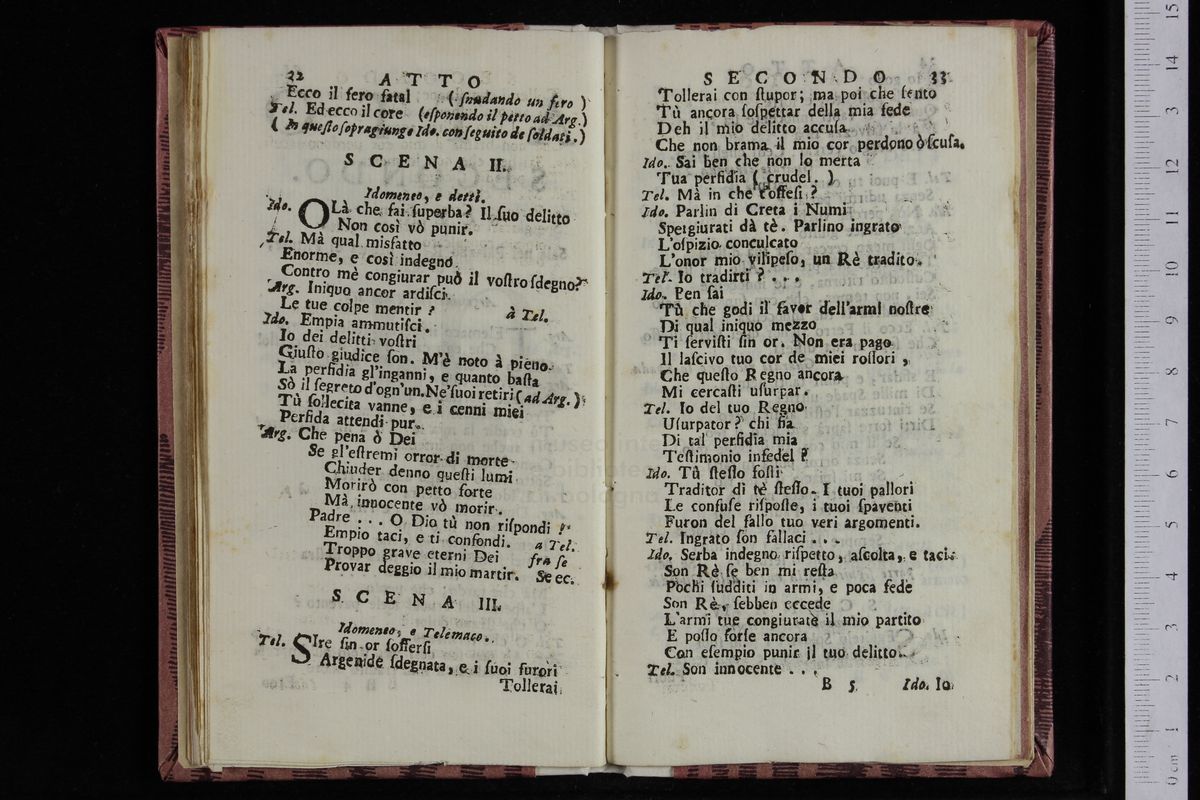 22 ATTO
Ecco il fero fatal (ſnudando un fero)
Tel. Ed ecco il core (eſponendo il petto ad Arg.)
( In queſto ſopragiunge Ido. con ſeguito de ſoldati.)
SCENA II.
Idomeneo, e detti.
Ido. OLà che fai ſuperba? Il ſuo delitto
Non così vò punir.
Tel. Mà qual misfatto
Enorme, e così indegno
Contro mè congiurar può il voſtro ſdegno?
Arg. Iniquo ancor ardiſci
Le tue colpe mentir? à Tel.
Ido. Empia ammutiſci.
Io dei delitti voſtri
Giuſto giudice ſon. M'è noto à pieno
La perfidia gl'inganni, e quanto baſta
Sò il ſegreto d'ogn'un. Ne' ſuoi retiri (ad Arg.)
Tù ſollecita vanne, e i cenni miei
Perfida attendi pur.
Arg. Che pena ò Dei
Se gl'eſtremi orror di morte
Chiuder denno queſti lumi
Morirò con petto forte
Mà innocente vò morir.
Padre . . . O Dio tù non riſpondi !
Empio taci, e ti confondi. a Tel.
Troppo grave eterni Dei fra ſe
Provar deggio il mio martir. Se ec.
SCENA III.
Idomeneo, e Telemaco.
Tel. SIre fin or ſofferſi
Argenide ſdegnata, e i ſuoi furori
Tollerai
SECONDO 33
Tollerai con ſtupor; ma poi che ſento
Tù ancora ſoſpettar della mia fede
Deh il mio delitto accuſa
Che non brama il mio cor perdono ò ſcuſa.
Ido. Sai ben che non lo merta
Tua perfidia ( crudel. )
Tel. Mà in che t'offeſi ?
Ido. Parlin di Creta i Numi
Spergiurati dà tè. Parlino ingrato
L'oſpizio conculcato
L'onor mio vilipeſo, un Rè tradito.
Tel. Io tradirti ? . . .
Ido. Ben ſai
Tù che godi il favor dell'armi noſtre
Di qual iniquo mezzo
Ti ſerviſti ſin or. Non era pago
Il laſcivo tuo cor de miei roſſori ,
Che queſto Regno ancora
Mi cercaſti uſurpar.
Tel. Io del tuo Regno
Uſurpator? chi fia
Di tal perfidia mia
Teſtimonio infedel ?
Ido. Tù ſteſſo foſti
Traditor di tè ſteſſo. I tuoi pallori
Le confuſe riſpoſte, i tuoi ſpaventi
Furon del fallo tuo veri argomenti.
Tel. Ingrato ſon fallaci . . .
Ido. Serba indegno riſpetto, aſcolta, e taci.
Son Rè ſe ben mi reſta
Pochi ſudditi in armi, e poca fede
Son Rè, ſebben eccede
L'armi tue congiurate il mio partito
E poſſo forſe ancora
Con eſempio punir il tuo delitto.
Tel. Son innocente . . .
B 5 Ido. Io